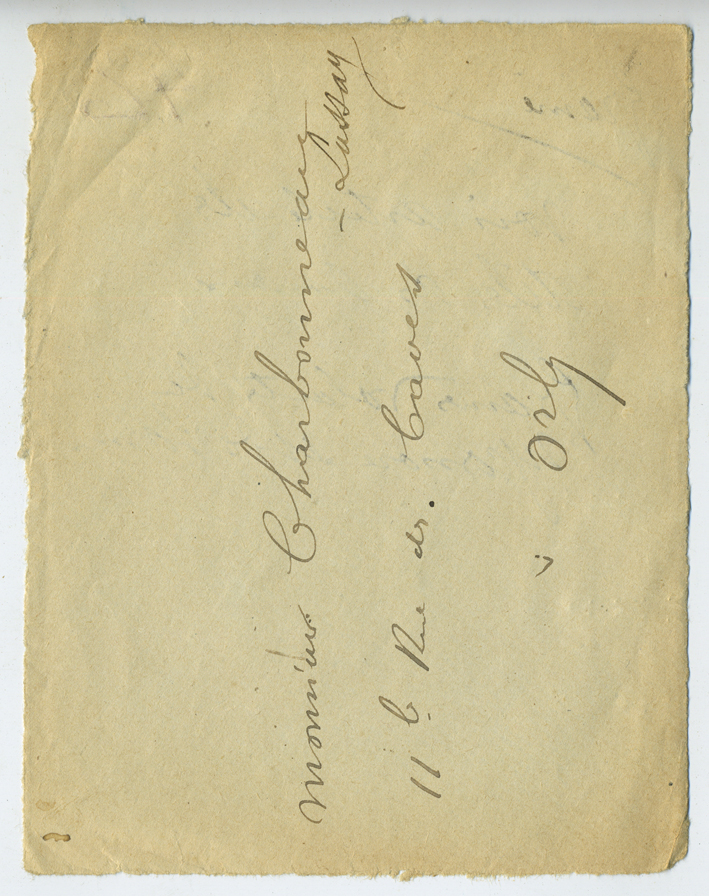 Monsieur Charbonneaux
- Lassay
11 b. Rue des. Caves
Orly